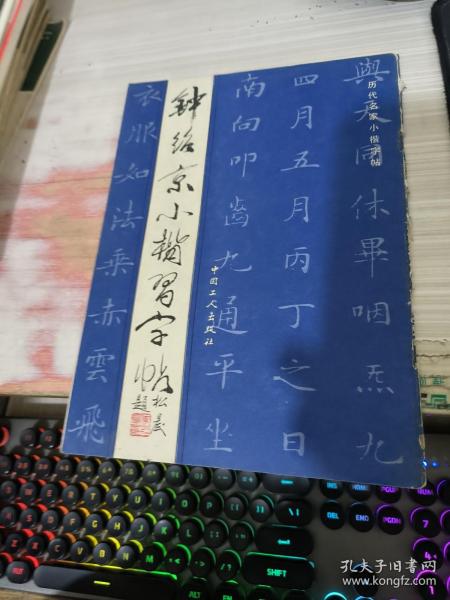 历代名家小楷字帖
與天同休畢咽炁九
四月五月丙丁之日
南向叩齒九通平坐
中国工人出版社
鍾紹京小楷習字帖
題
衣服如法乘赤雲飛
DEL END PGDN
NUM
7
SHIFT
ALT FN
孔夫子旧书网
www.kongfz.com